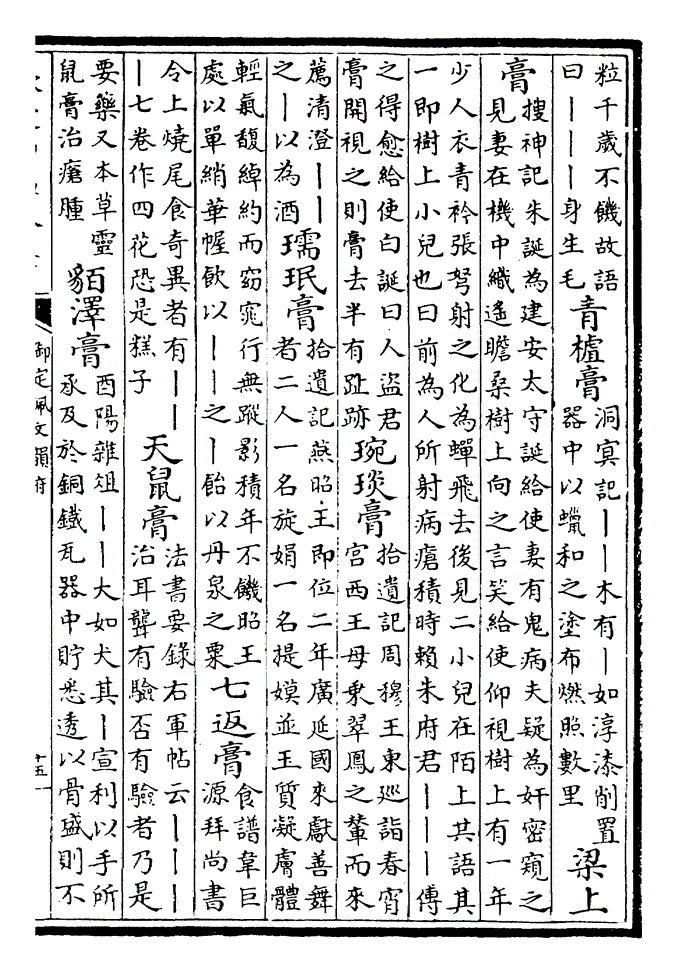 粒千歲不饑故語
曰丨丨丨身生毛
青櫨膏
洞冥記丨丨木有丨如淳漆削置
器中以蠟和之塗布燃照數里
梁上
膏
搜神記朱誕為建安太守誕給使妻有鬼病夫疑為奸密窺之
見妻在機中織遙瞻桑樹上向之言笑給使仰視樹上有一年
少人衣青衿張弩射之化為蟬飛去後見二小兒在陌上其語其
一即樹上小兒也曰前為人所射病瘡積時賴朱府君丨丨丨傅
之得愈給使白誕曰人盜君
膏開視之則膏去半有趾跡
琬琰膏
拾遺記周穆王東巡詣春宵
宮西王母乘翠鳳之輦而來
薦清澄丨丨
之丨以為酒
瓀珉膏
拾遺記燕昭王即位二年廣延國來獻善舞
者二人一名旋娟一名提嫫並玉質凝膚體
輕氣馥綽約而窈窕行無蹤影積年不饑昭王
處以單綃華幄飲以丨丨之丨飴以丹泉之粟
七返膏
食譜韋巨
源拜尚書
令上燒尾食奇異者有丨丨
丨七卷作四花恐是糕子
天鼠膏
法書要錄右軍帖云丨丨丨
治耳聾有驗否有驗者乃是
要藥又本草靈
鼠膏治瘡腫
貊澤膏
酉陽雜俎丨丨大如犬其丨宣利以手所
承及於銅鐵瓦器中貯悉透以骨盛則不
御定佩文韻府
十五